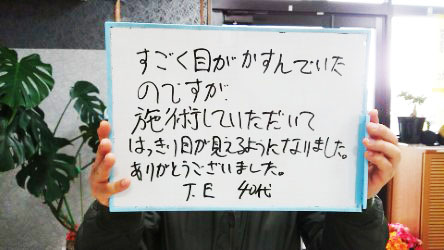 すごく目がかすんでいた
のですが
施術していただいて
はっきり目が見えるようになりました。
ありがとうございました。
T.E 40代